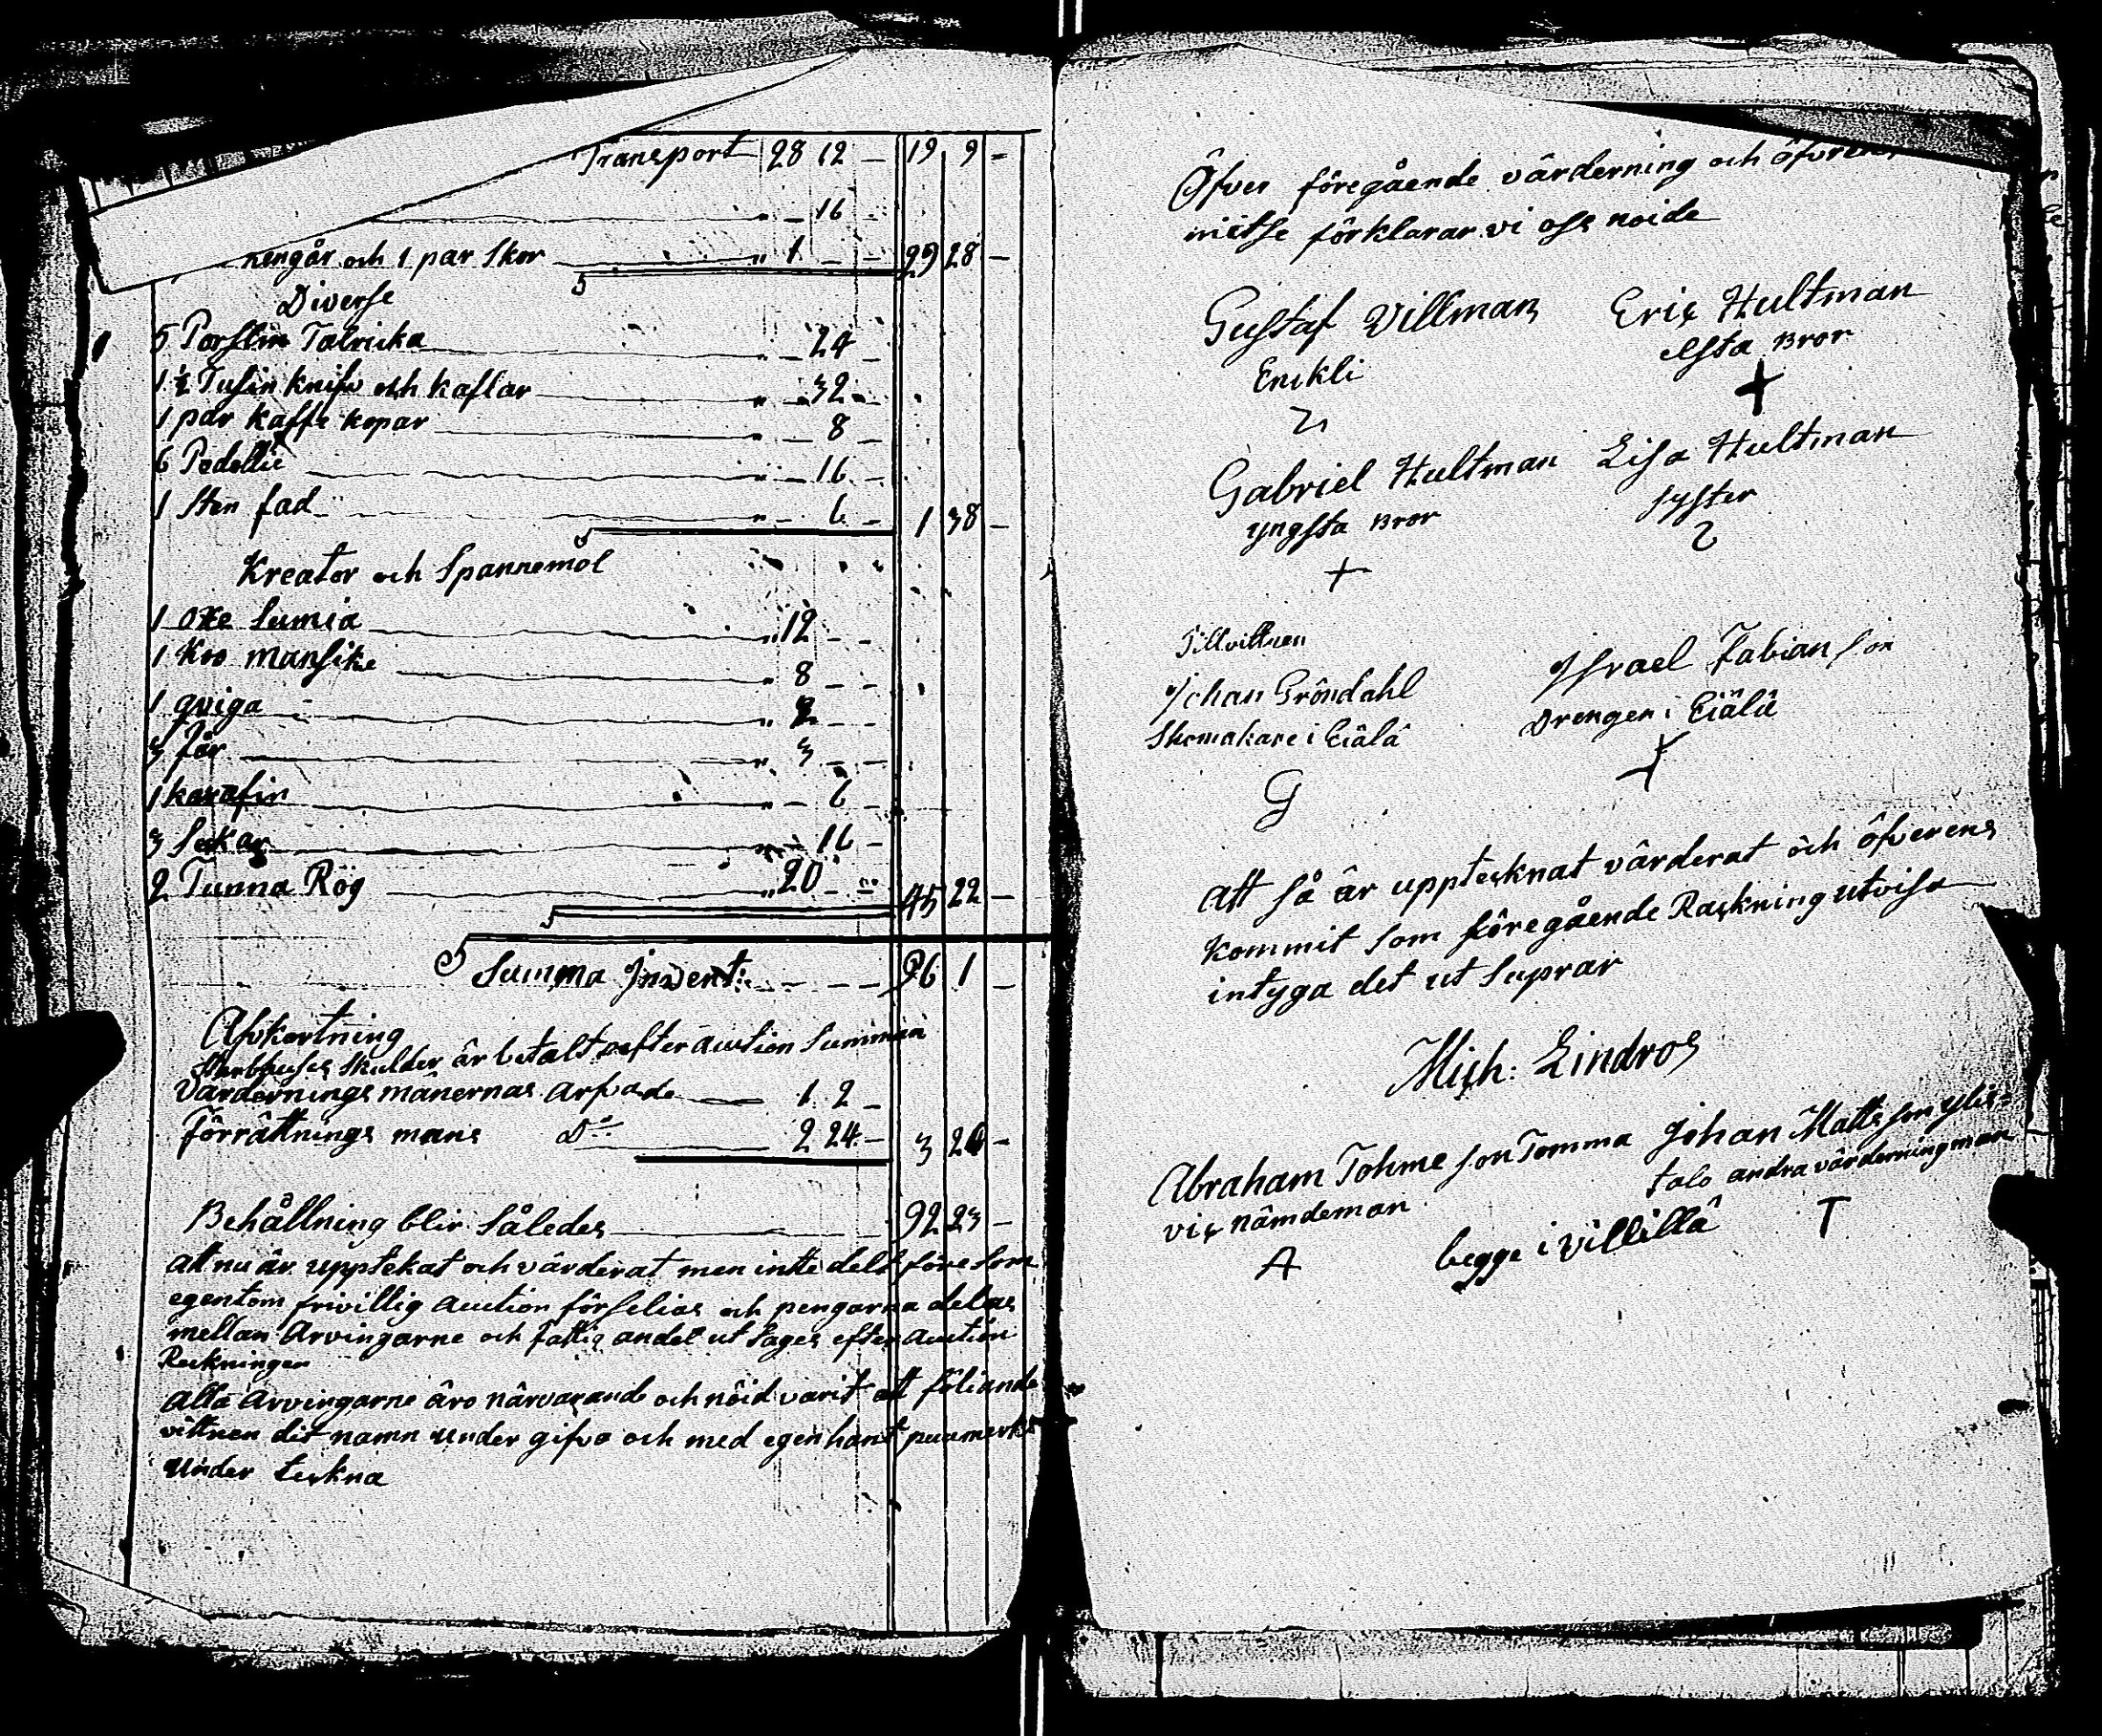 Transport 28 12 — 19 9 —
" — 16 —
nengår och 1 par Skor " 1 — — 29 28 —
Diverse
5 Porslins Talricka " — 24 —
1 ½ Tusin knifv och kaflar " — 32 —
1 par kaffe kopar " — 8 —
6 " — 16 —
1 Sten fad " — 6 — 1 38 —
Kreator och Spannemol
1 oxe Lumia " 12 — —
1 Koo mansike " 8 — —
1 qviga " 2 — —
3 får " 3 — —
1 karafin " — 6 —
3 Sekar " — 16 —
2 Tunna Rög " 20 — — 45 22 —
Summa Invent: — — — 96 1 —
Afvkortning
Sterbhuses Skulder är betalt efter auction Summan
Värdernings mänernas arfvade 1 2 —
Förrättnings mans Do 2 24 — 3 26 —
Behållning blir Således 92 23 —
att nu är upptekat och värderat men intte delt före som
egentom frivillig auction förselias och pengarna delas
mellan Arvingarne och fattig andel ut tages efter auction
Reckningen
alla Arvingarne äro närvarande och nöid varit att föliande
vittnen dit namn under gifva och med egen hant puumerki
under teckna
Öfver föregående värderning och öfverens
mittse förklarar vi oss noide
Gustaf Villman Eric Hultman
Enckli elsta Bror
+
Gabriel Hultman Lisa Hultman
yngsta Bror syster
+
Till vittnen
Johan Gröndahl Israel Fabian son
Skomakare i Eiälä Drengen i Eiälä
G
att så är upptecknat värderat och öfverens
kommit som föregående Räckning utvisa
intyga det ut Suprar
Mich: Lindros
Abraham Tohme son Tomma Johan Matts son Ylis=
vic nämdeman talo andra värderningman
A begge i Villillä T